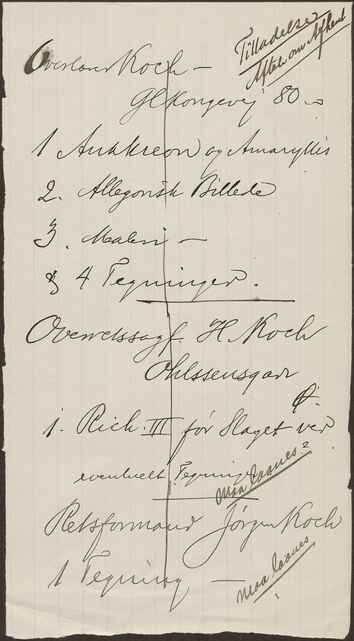 Tilladelse
Aftale om Afhent
Overlæge Koch —
Gl Kongevej 80
1 Anakreon og Amaryllis
2. Allegorisk Billede
3. Maleri —
4 Tegninger.
Overretssagf. H. Koch
Ohlssensgade Ø.
1. Rich. III før Slaget ved
eventuelt Tegning
maa laanes?
Retsformand Jørgen Koch
1 Tegning —
maa laanes